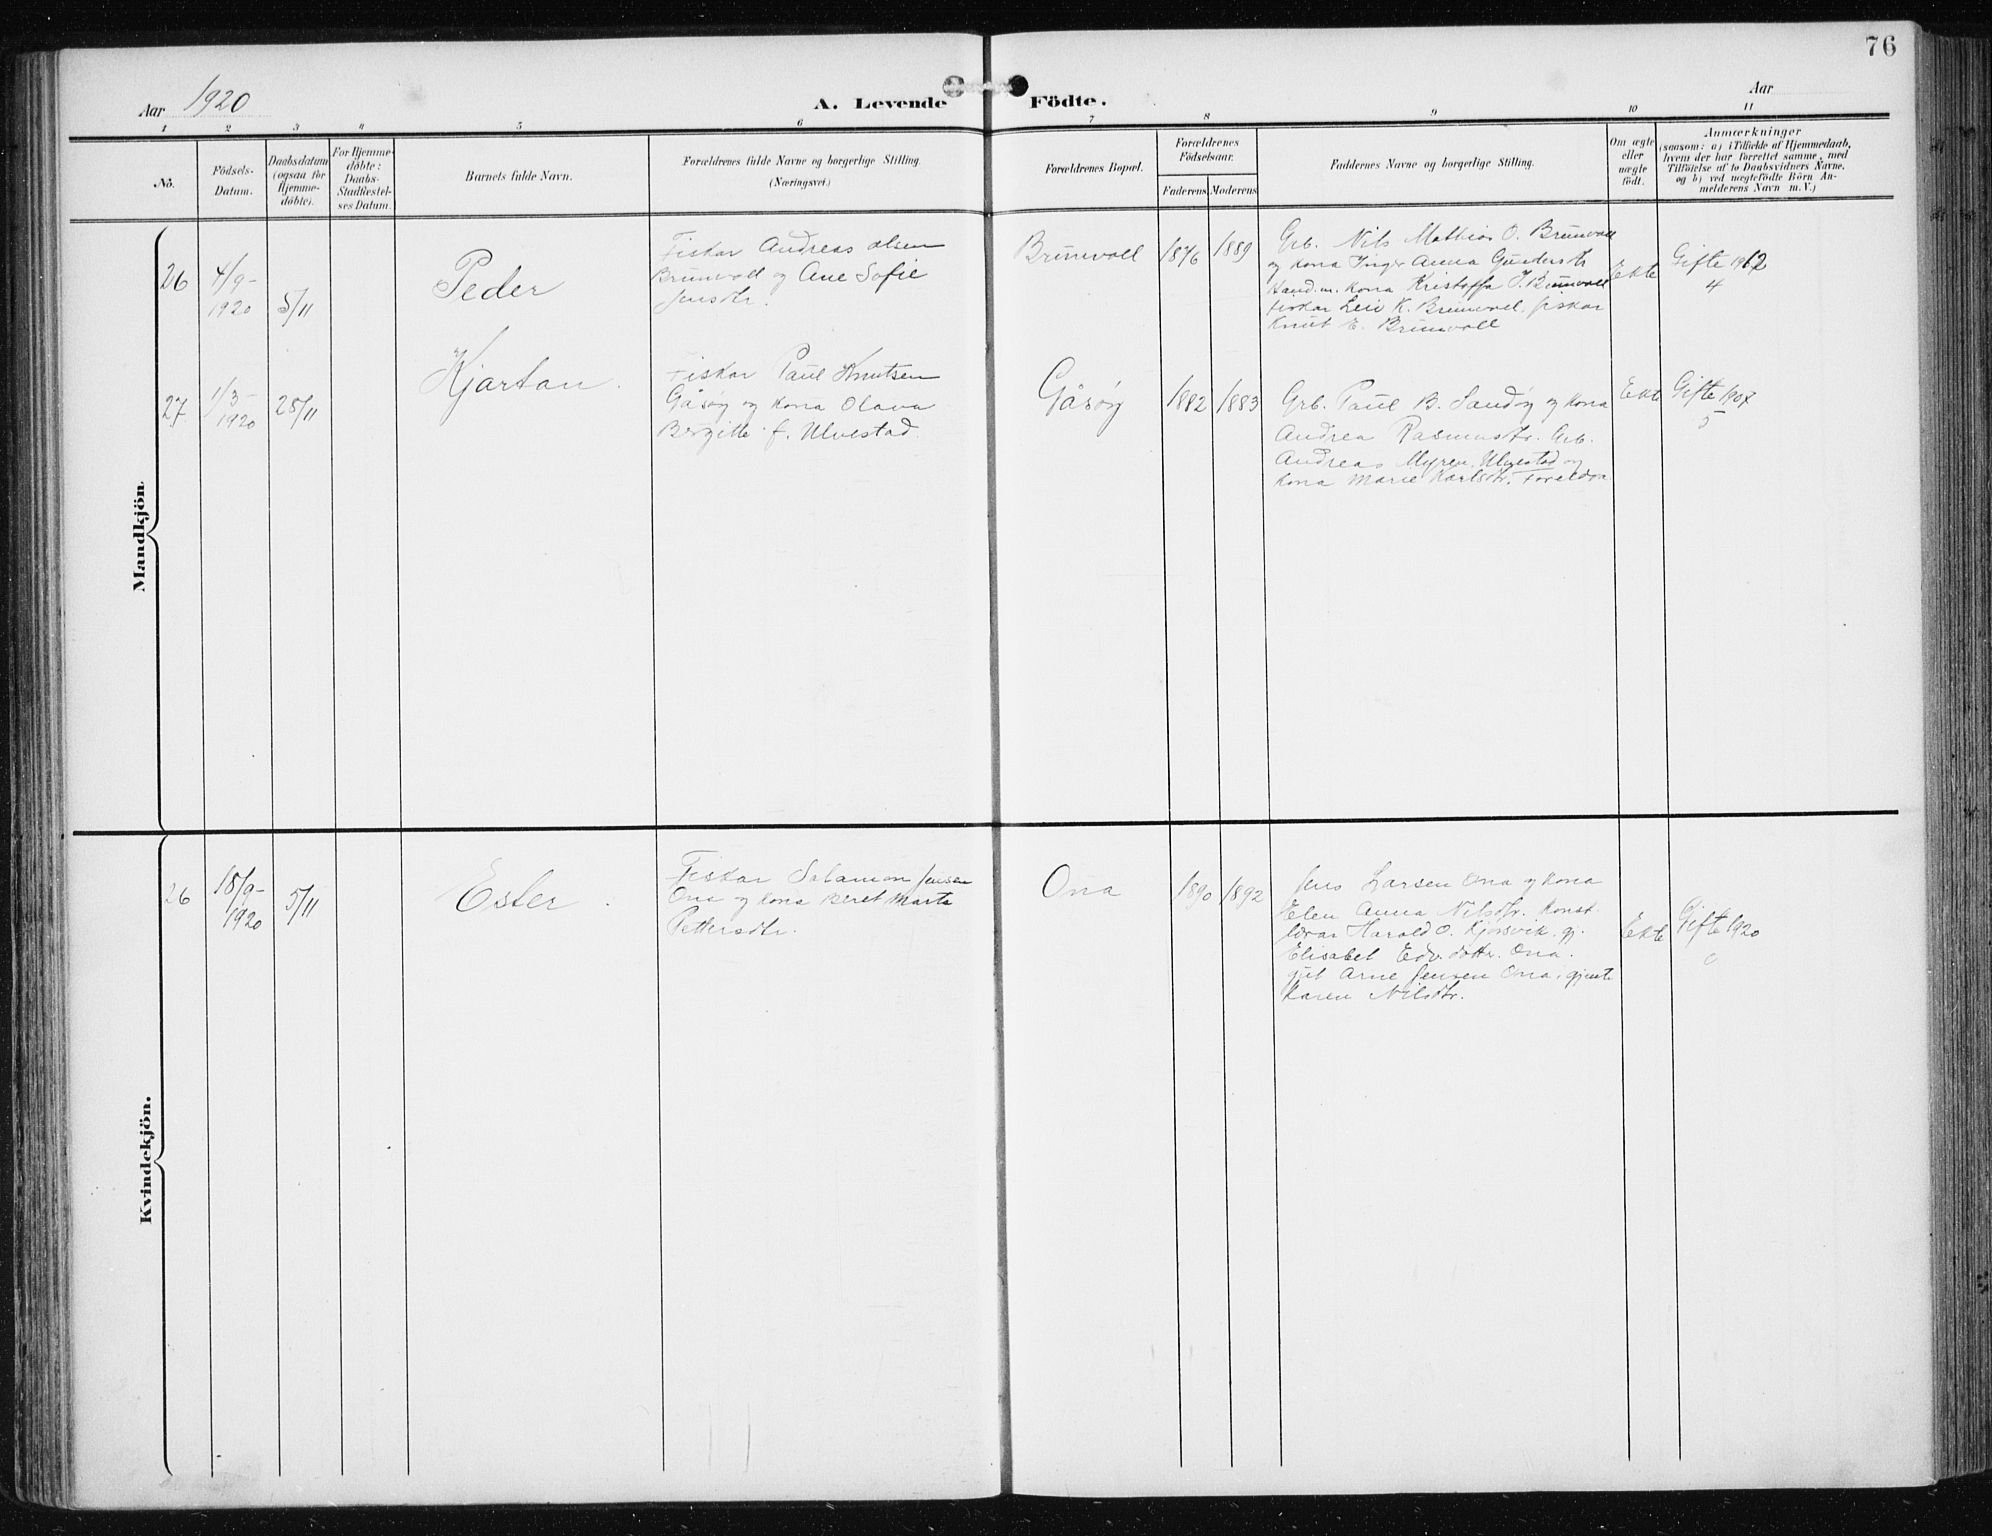 76
Aar 1920
A. Levende Födte.
Aar
1 2 3 4 5 6 7 8 9 10 11
No.
Födsels-
Datum.
Daabsdatum
(ogsaa for
Hjemme-
döbte).
For Hjemme-
döbte:
Daabs-
Stadfæstel-
ses Datum.
Barnets fulde Navn.
Forældrenes fulde Navne og borgerlige Stilling.
(Næringsvei.)
Forældrenes Bopæl.
Forældrenes
Födselsaar.
Faderens Moderens
Faddernes Navne og borgerlige Stilling.
Om ægte
eller
uægte
födt.
Anmærkninger
(saasom: a) i Tilfælde af Hjemmedaab,
hvem der har forrettet samme, med
Tilföielse af to Daabsvidners Navne,
og b) ved uægtefödte Börn An-
melderens Navn m. V.)
Mandkjön
26
4/9-
1920
5/11
Peder
Fiskar Andreas Olsen
Brunvoll og Ane Sofie
Jensdtr.
Brunvoll
1876
1889
Grb. Nils Mathias O. Brunvoll
og kona Inger Anna Gundersdtr
Hand.m. kona Kristoffa J. Brunvoll
fiskar Leiv K. Brunvoll, fiskar
Knut E. Brunvoll
Ekte
Gifte 1912
4
27
1/3-
1920
28/11
Kjartan.
Fiskar Paul Knutsen
Gåsöy og kona Olava
Bergitte f. Ulvestad.
Gåsöy
1882
1883
Grb. Paul B. Sandöy og kona
Andrea Rasmusdtr. Grb.
Andreas Myren, Ulvestad og
kona Marie Karlsdtr. Foreldra
Ekte
Gifte 1907
5
Kvindekjön.
26
18/9-
1920
5/11
Ester.
Fiskar Salamon Jensen
Ona og kona Beret Marta
Pettersdtr.
Ona
1890
1892
Jens Larsen Ona og kona
Elen Anna Nilsdtr. Konst.
lærar Harald O. Kjörsvik, gj.
Elisabet Edv. dotter. Ona.
gut Arne Jensen Ona, gjente
Karen Nilsdtr.
Ekte
Gifte 1920
0